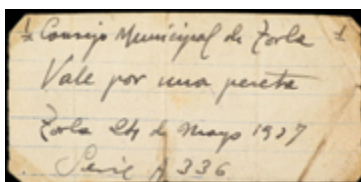 1 Consejo Municipal de Torla 1
Vale por una peseta
Torla 24 de Mayo 1937
Serie A 336